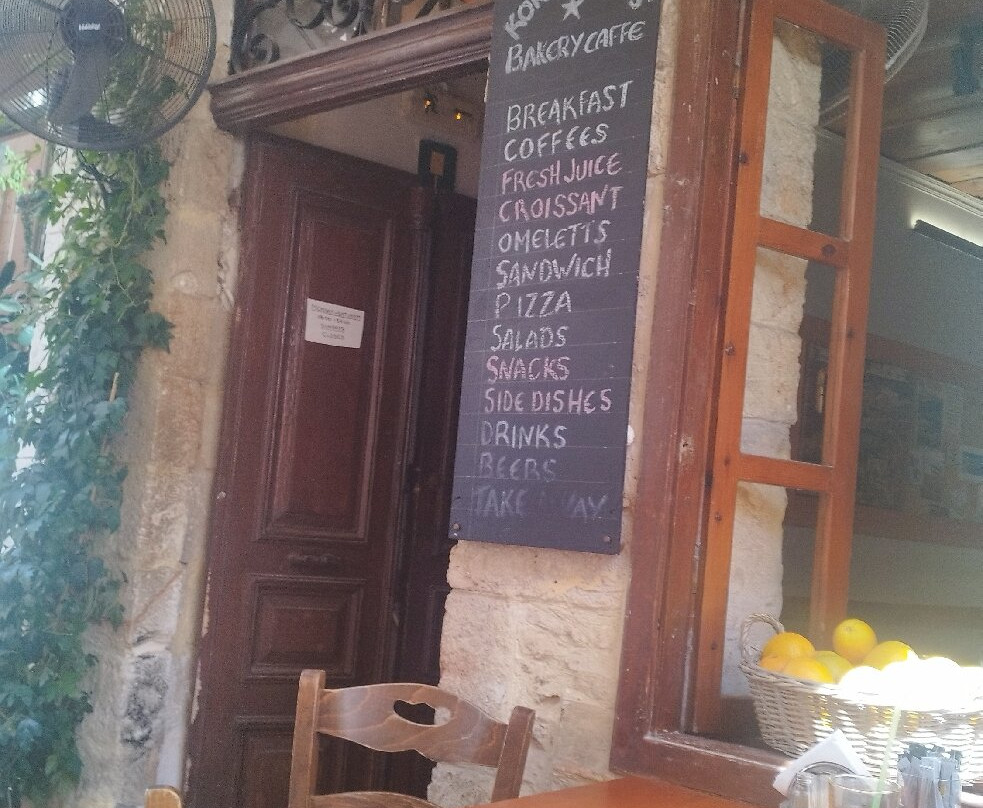 BAKERY CAFFE
BREAKFAST
COFFEES
FRESH JUICE
CROISSANT
OMELETTS
SANDWICH
PIZZA
SALADS
SNACKS
SIDE DISHES
DRINKS
BEERS
TAKE AWAY